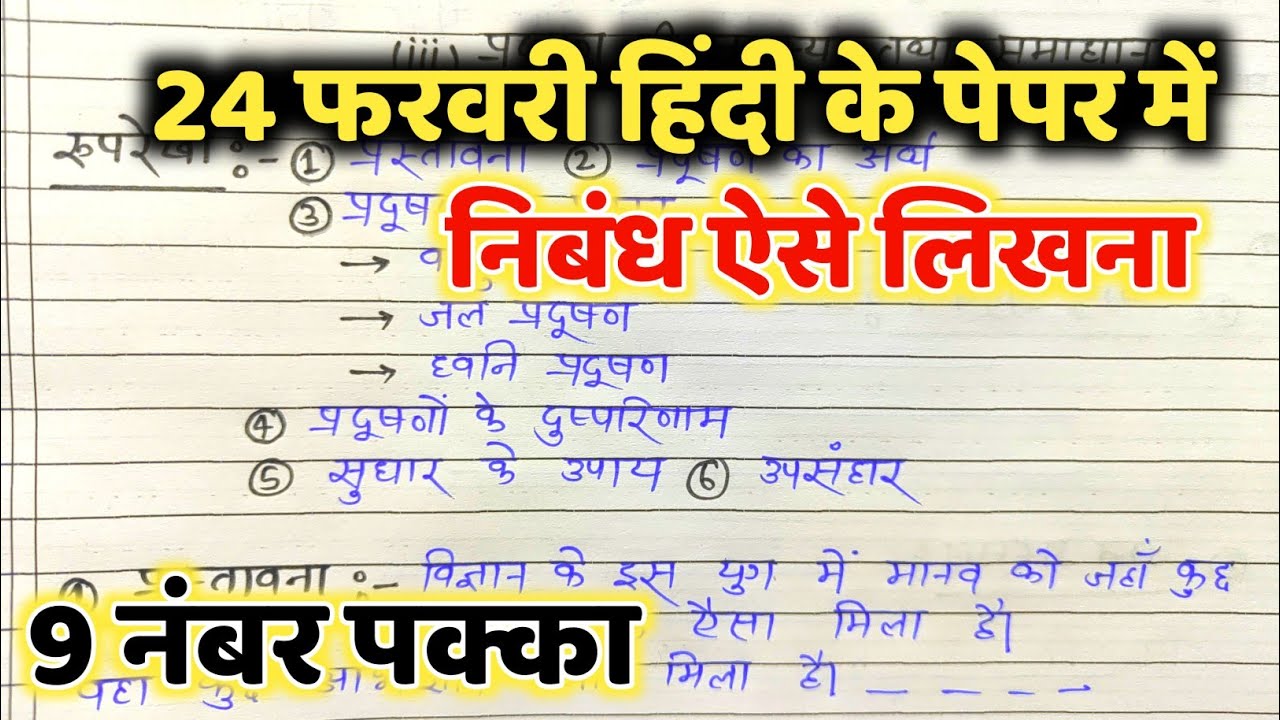 (iii) समाधान
24 फरवरी हिंदी के पेपर में
रूपरेखा :- ① प्रस्तावना ② प्रदूषण का अर्थ
③ प्रदूष
निबंध ऐसे लिखना
→
→ जल प्रदूषण
→ ध्वनि प्रदूषण
④ प्रदूषणों के दुष्परिणाम
⑤ सुधार के उपाय ⑥ उपसंहार
प्रस्तावना :- विज्ञान के इस युग में मानव को जहाँ कुछ
ऐसा मिला है।
9 नंबर पक्का
मिला है। _ _ _ _